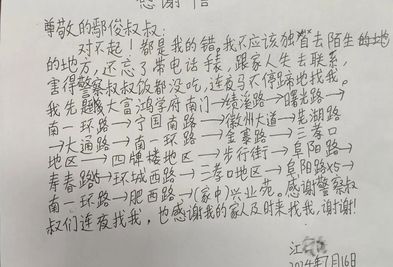 感谢信
尊敬的鄢俊叔叔:
对不起!都是我的错。我不应该独自去陌生的地
的地方,还忘了带电话手表,跟家人失去联系,
害得警察叔叔饭都没吃,连夜马不停蹄地找我。
我先从大富鸿学府南门→绩溪路→曙光路→
南一环路→宁国南路→徽州大道→芜湖路
→大通路→南一环路→金寨路→三孝口
地区→四牌楼地区→步行街→阜阳路→
寿春路→环城西路→三孝口地区→阜阳路x5→
南一环路→肥西路→(家中)兴业苑。感谢警察叔
叔们连夜找我,也感谢我的家人及时来找我,谢谢!
江
2024年7月16日